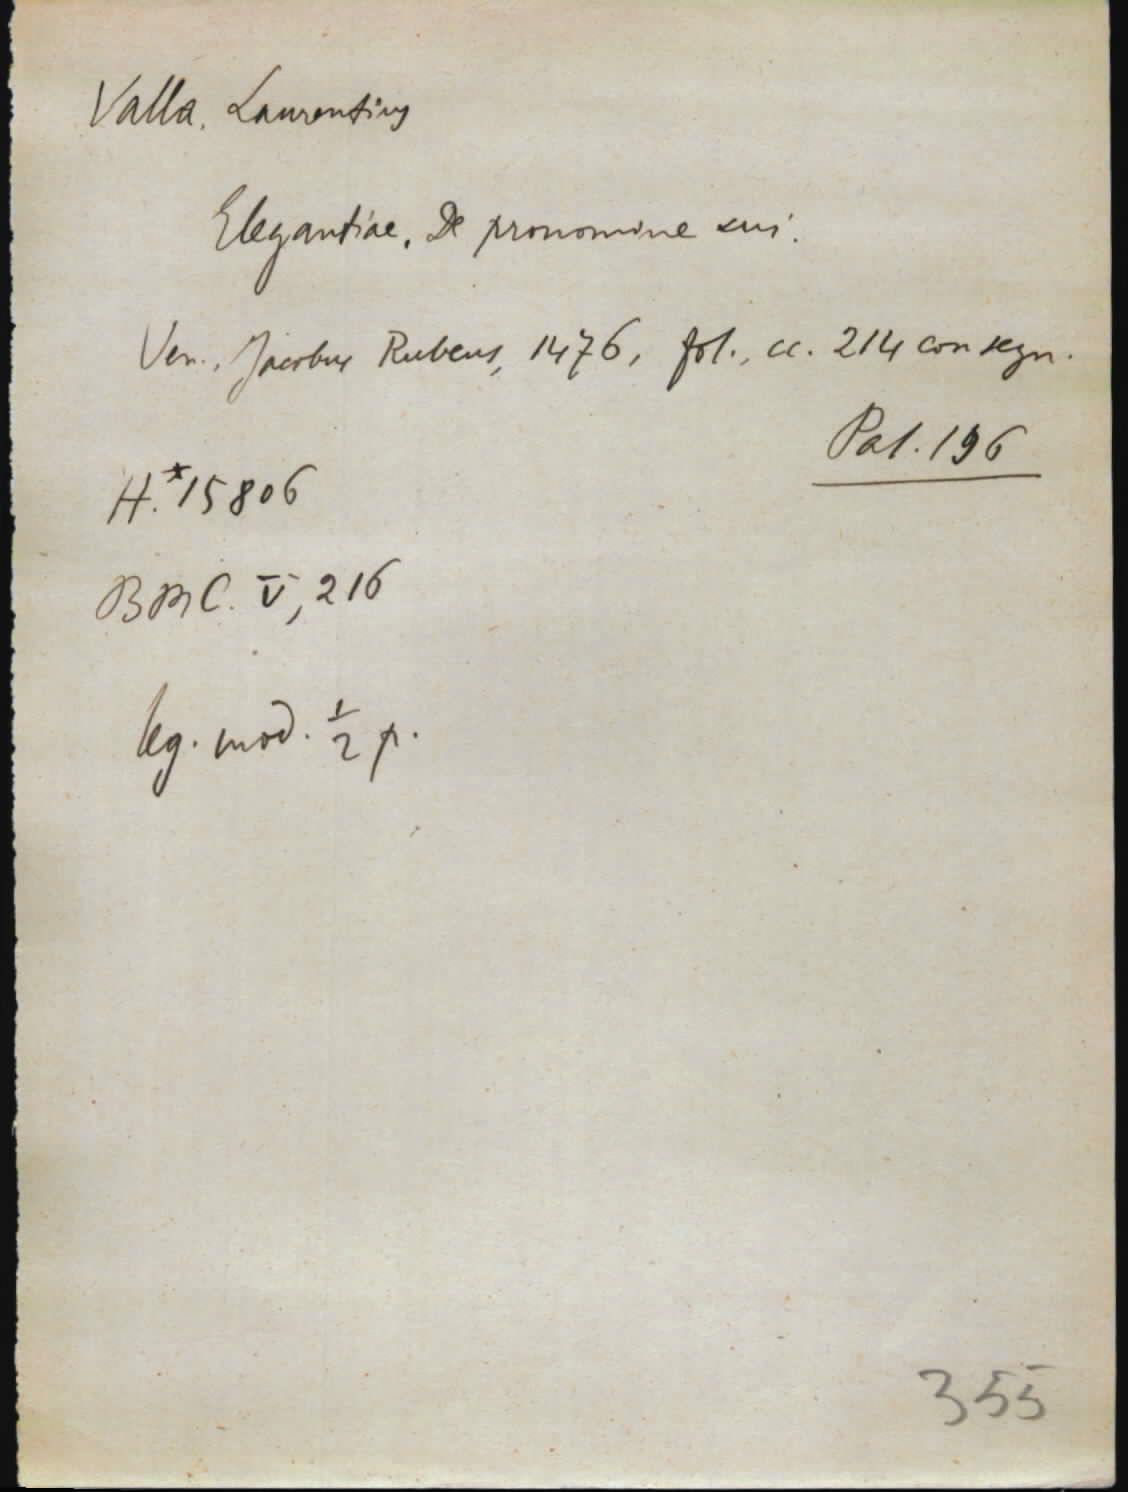 Valla. Laurentius
Elegantiae. De pronomine sui.
Ven., Jacobus Rubeus, 1476, fol., cc. 214 con segn.
Pal. 196
H.*15806
BMC. V, 216
leg. mod. ½ p.
355